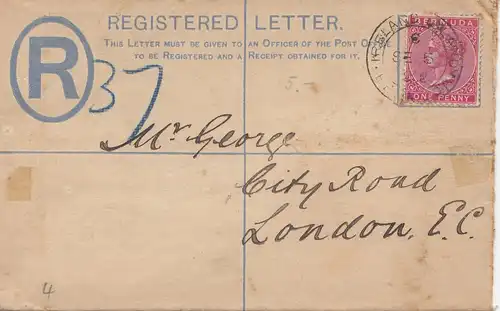 REGISTERED LETTER.
THIS LETTER MUST BE GIVEN TO AN OFFICER OF THE POST OFFICE
TO BE REGISTERED AND A RECEIPT OBTAINED FOR IT.
R
37
5.-
BERMUDA
ONE PENNY
Mr George
City Road
London, E.C.
4